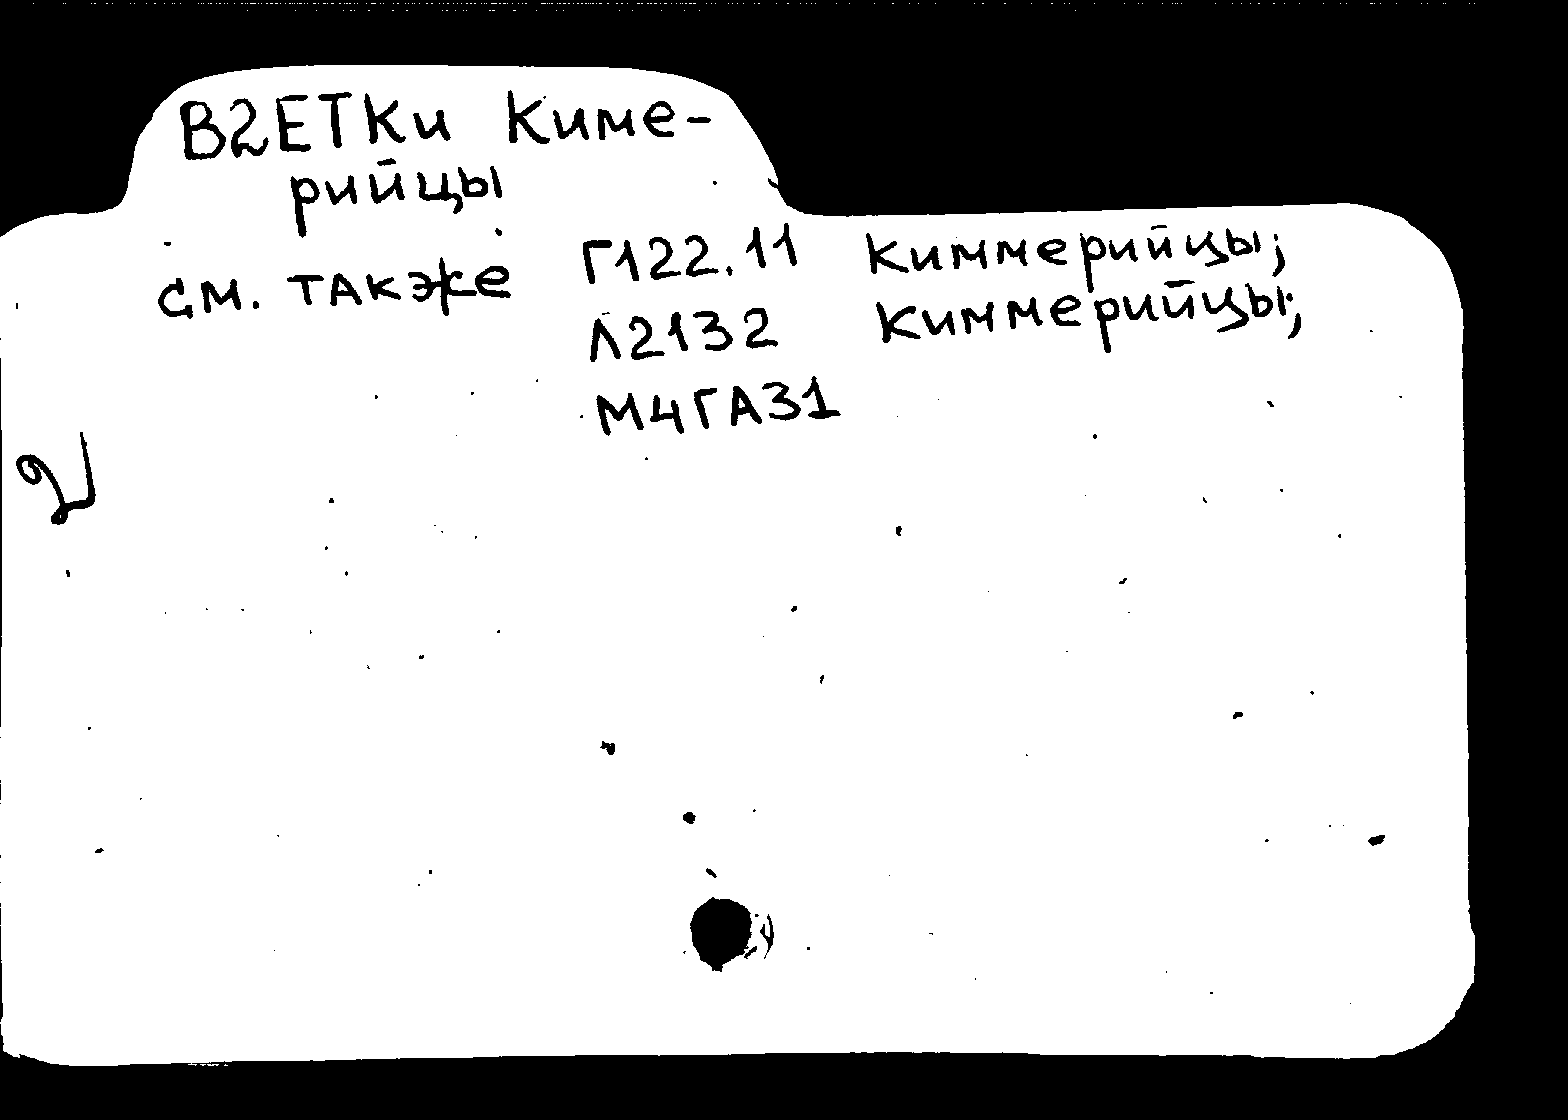 В2ЕТКи Киме-
рийцы
см. также Г122.11 Киммерийцы;
Л2132 Киммерийцы;
М4ГА31